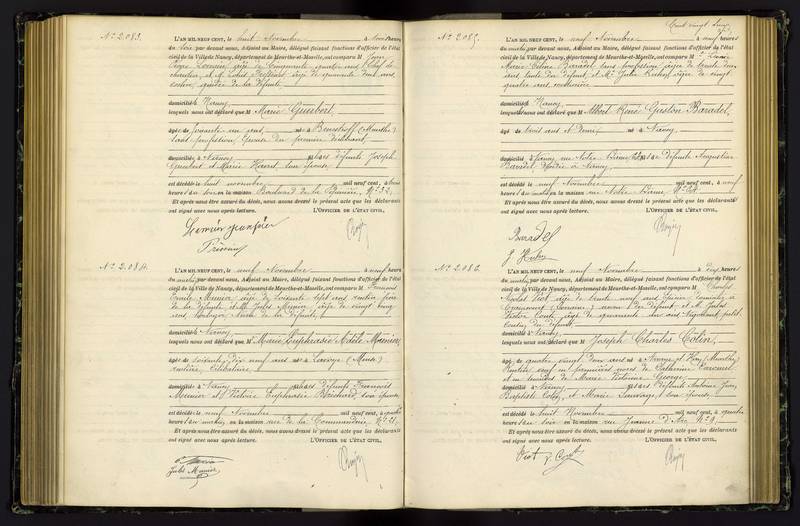 N° 2.083.
L'AN MIL NEUF CENT, le huit Novembre à trois heures
du soir par devant nous, Adjoint au Maire, délégué faisant fonctions d'officier de l'état
civil de la Ville de Nancy, département de Meurthe-et-Moselle, ont comparu M Jean
domicilié à Nancy
lesquels nous ont déclaré que M Marie Guebert,
âgée de soixante un ans née à (Meurthe)
sans profession, épouse du premier déclarant,
domiciliée à Nancy fille des défunts Joseph
Guebert et Marie son épouse
est décédée le huit novembre mil neuf cent, à
heures du soir en la maison Boulevard de la Pépinière, N° 32
Et après nous être assuré du décès, nous avons dressé le présent acte que les déclarants
ont signé avec nous après lecture. L'OFFICIER DE L'ÉTAT CIVIL,
N° 2.084.
L'AN MIL NEUF CENT, le neuf Novembre à neuf heures
du matin par devant nous, Adjoint au Maire, délégué faisant fonctions d'officier de l'état
civil de la Ville de Nancy, département de Meurthe-et-Moselle, ont comparu M François
Emile Munier, âgé de soixante sept ans rentier frère
de la défunte, et M Jules Munier, âgé de vingt cinq
ans neveu de la défunte,
domiciliés à Nancy
lesquels nous ont déclaré que M Marie Euphrasie Adèle Munier,
âgée de soixante dix neuf ans née à Lavoye (Meuse)
rentière, célibataire
domiciliée à Nancy fille des défunts François
Munier et Victoire Euphrasie son épouse
est décédée le neuf Novembre mil neuf cent, à quatre
heures du matin en la maison rue de la Commanderie N° 21,
Et après nous être assuré du décès, nous avons dressé le présent acte que les déclarants
ont signé avec nous après lecture. L'OFFICIER DE L'ÉTAT CIVIL,
Jules Munier
N° 2.085.
L'AN MIL NEUF CENT, le neuf Novembre à neuf heures
du matin par devant nous, Adjoint au Maire, délégué faisant fonctions d'officier de l'état
civil de la Ville de Nancy, département de Meurthe-et-Moselle, ont comparu M
Marie Baradel, sans profession, âgée de trente deux
ans tante du défunt, et M Julie âgée de vingt
quatre ans, couturière
domiciliées à Nancy
lesquels nous ont déclaré que M Albert René Gaston Baradel,
âgé de trois ans et demi né à Nancy,
domicilié à Nancy, rue Notre Dame fils de défunte Augustine
Baradel, décédée à Nancy,
est décédé le neuf Novembre mil neuf cent, à neuf
heures du matin en la maison rue Notre Dame N° 64
Et après nous être assuré du décès, nous avons dressé le présent acte que les déclarants
ont signé avec nous après lecture. L'OFFICIER DE L'ÉTAT CIVIL,
Baradel
N° 2.086.
L'AN MIL NEUF CENT, le neuf Novembre à dix heures
du matin par devant nous, Adjoint au Maire, délégué faisant fonctions d'officier de l'état
civil de la Ville de Nancy, département de Meurthe-et-Moselle, ont comparu M Charles
Nicolas Viot âgé de trente neuf ans
neveu du défunt, et M Jules
Victor âgé de quarante un ans Négociant petit
cousin du défunt,
domicilié à Nancy
lesquels nous ont déclaré que M Joseph Charles Colin,
âgé de quatre vingt deux ans né à (Meurthe)
Rentier veuf en premières noces de Catherine
et en secondes de Marie Victorine George
domicilié à Nancy fils des défunts Antoine Jean
Baptiste Colin, et Marie Sauvage, son épouse,
est décédé le huit Novembre mil neuf cent, à quatre
heures du soir en la maison rue Jeanne d'Arc N° 4,
Et après nous être assuré du décès, nous avons dressé le présent acte que les déclarants
ont signé avec nous après lecture. L'OFFICIER DE L'ÉTAT CIVIL,
Viot